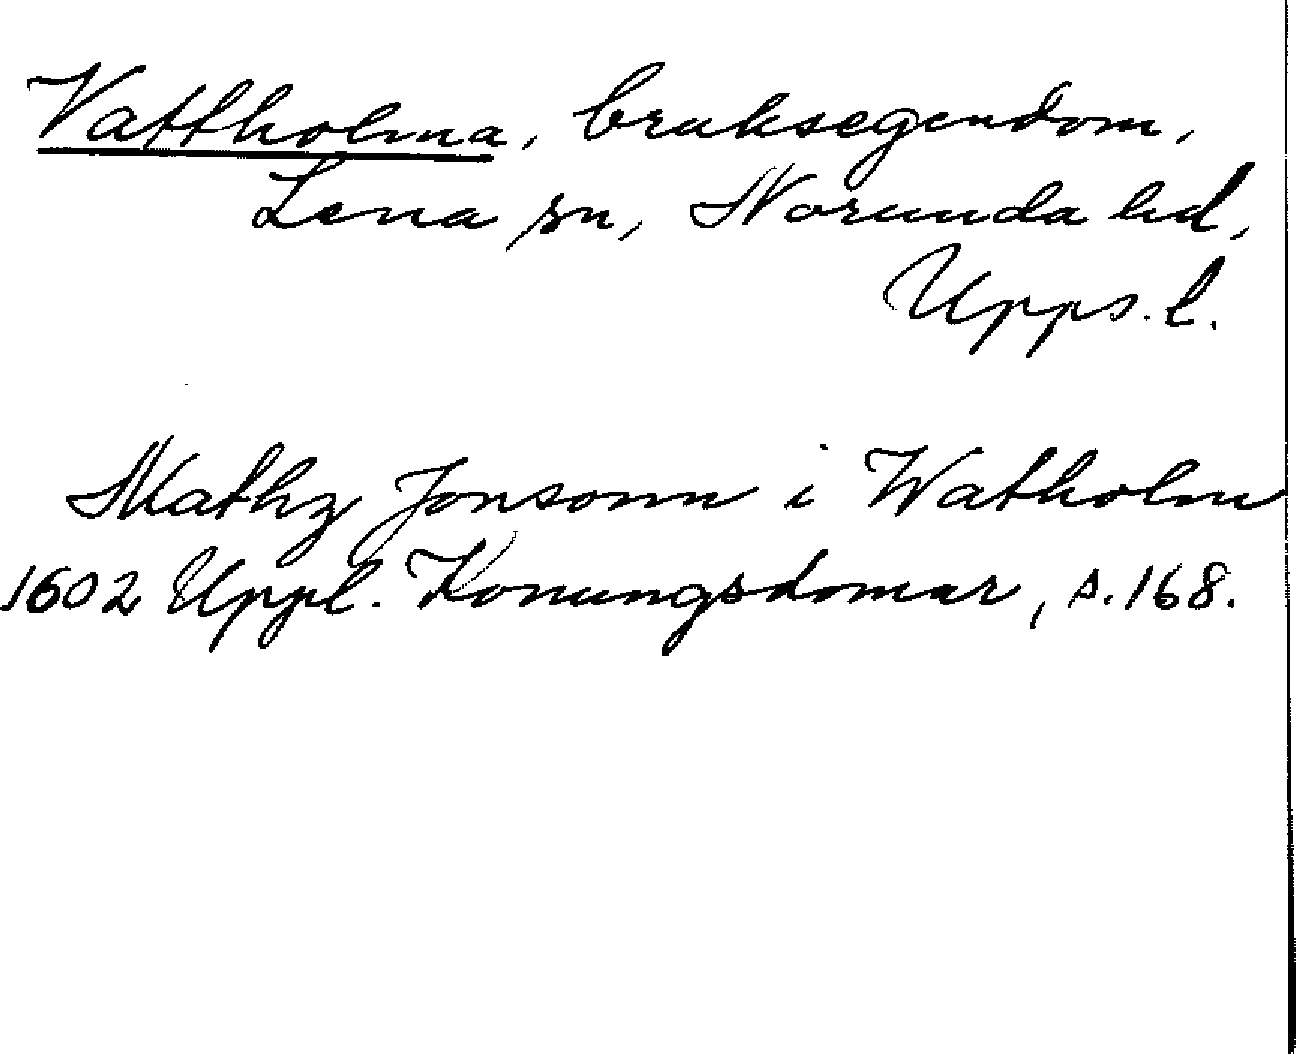 Vattholma, bruksegendom,
Lena sn, Norunda hd,
Upps. l.
Mathz Jonsonn i Watholm
1602 Uppl. Konungsdomar, s. 168.